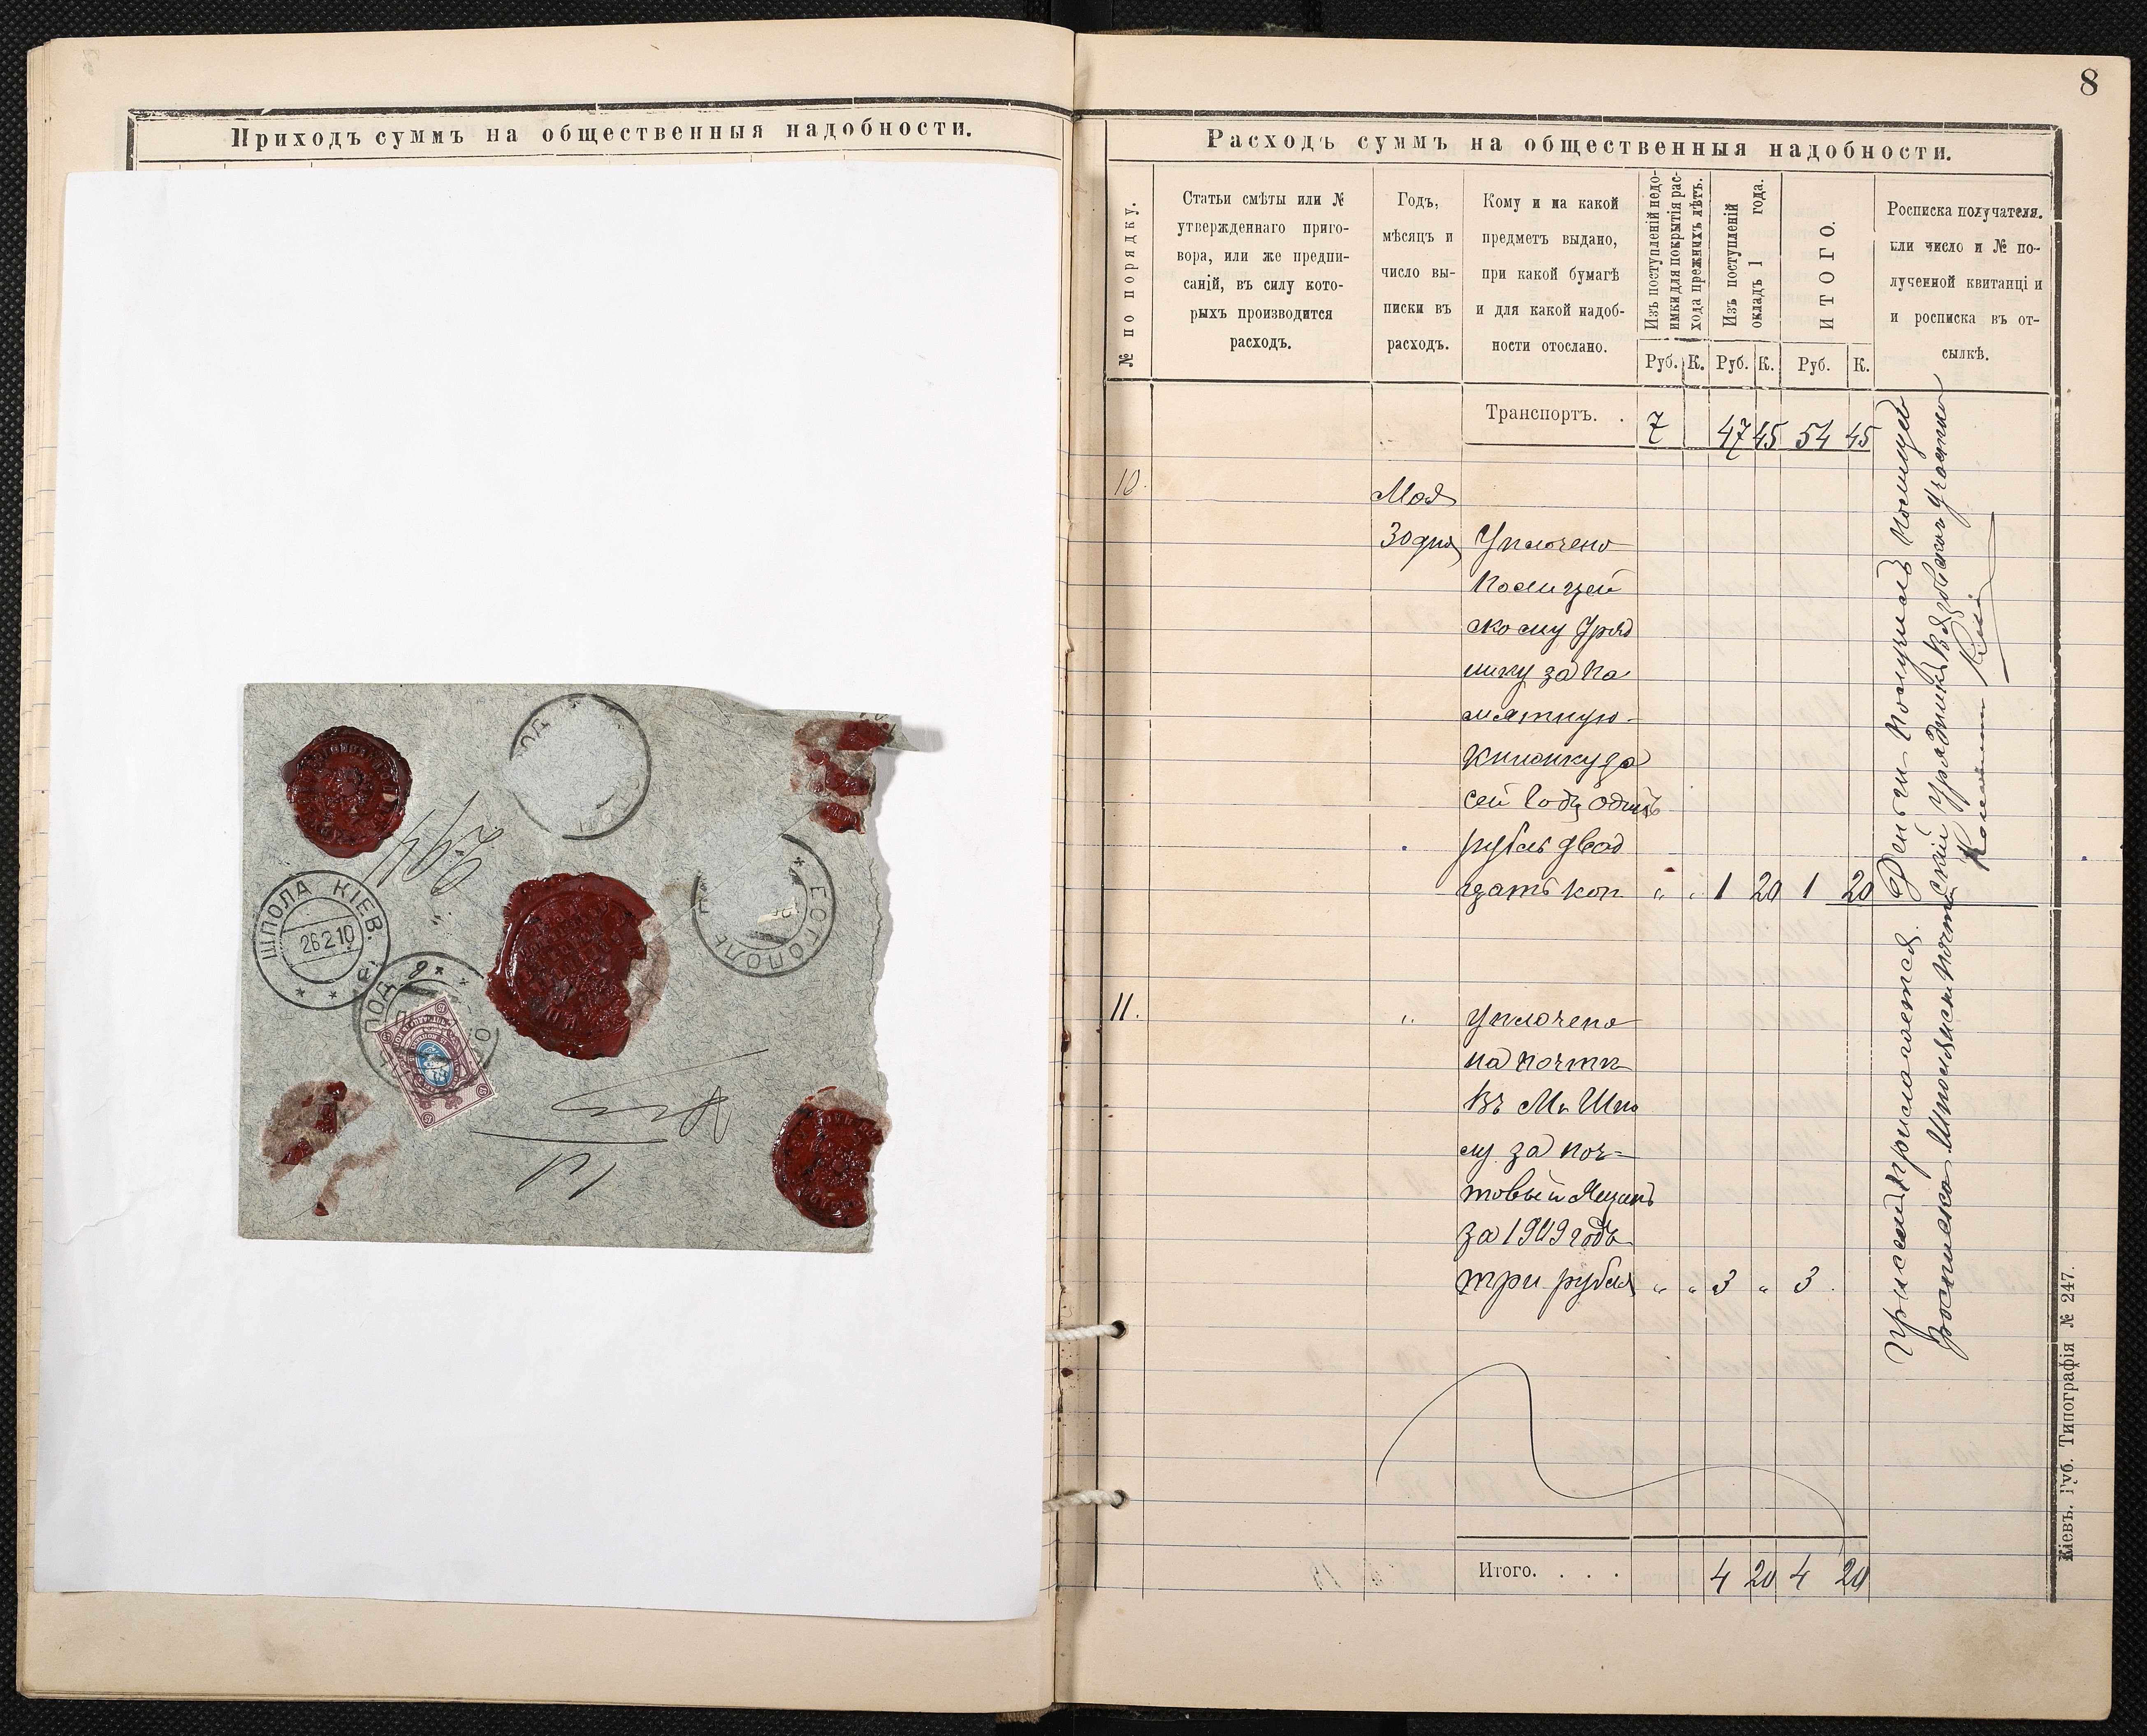 Приходъ суммъ на общественныя надобности.
ШПОЛА КІЕВ.
26 2 10
8
Расходъ суммъ на общественныя надобности.
№ по порядку.
Статьи смѣты или №
утвержденнаго приго-
вора, или же предпи-
саній, въ силу кото-
рыхъ производится
расходъ.
Годъ,
мѣсяцъ и
число вы-
писки въ
расходъ.
Кому и на какой
предметъ выдано,
при какой бумагѣ
и для какой надоб-
ности отослано.
Изъ поступленій недо-
имки для покрытія рас-
хода прежнихъ лѣтъ.
Изъ поступленій
окладъ 1 года.
ИТОГО.
Росписка получателя.
или число и № по-
лученной квитанціи
и росписка въ от-
сылкѣ.
Руб. К. Руб. К. Руб. К.
Транспортъ. . 7 47 45 54 45
10. Мая
30 дня Уплочено
Полицей
скому Уряд
нику за Па
мятную
Книжку за
сей годъ одинъ
рубль двад
цать коп „ „ 1 20 1 20
Деньги получилъ Полицей
скій Урядникъ участка
11. „ Уплочено
на почти
Въ М. Шпо
лу за поч-
товый Ящикъ
за 1909 годъ
три рубля „ „ 3 „ 3
прилагается
росписка Шполянск. почт.
Итого. . . . 4 20 4 20
Кіевъ. Губ. Типографія № 247.